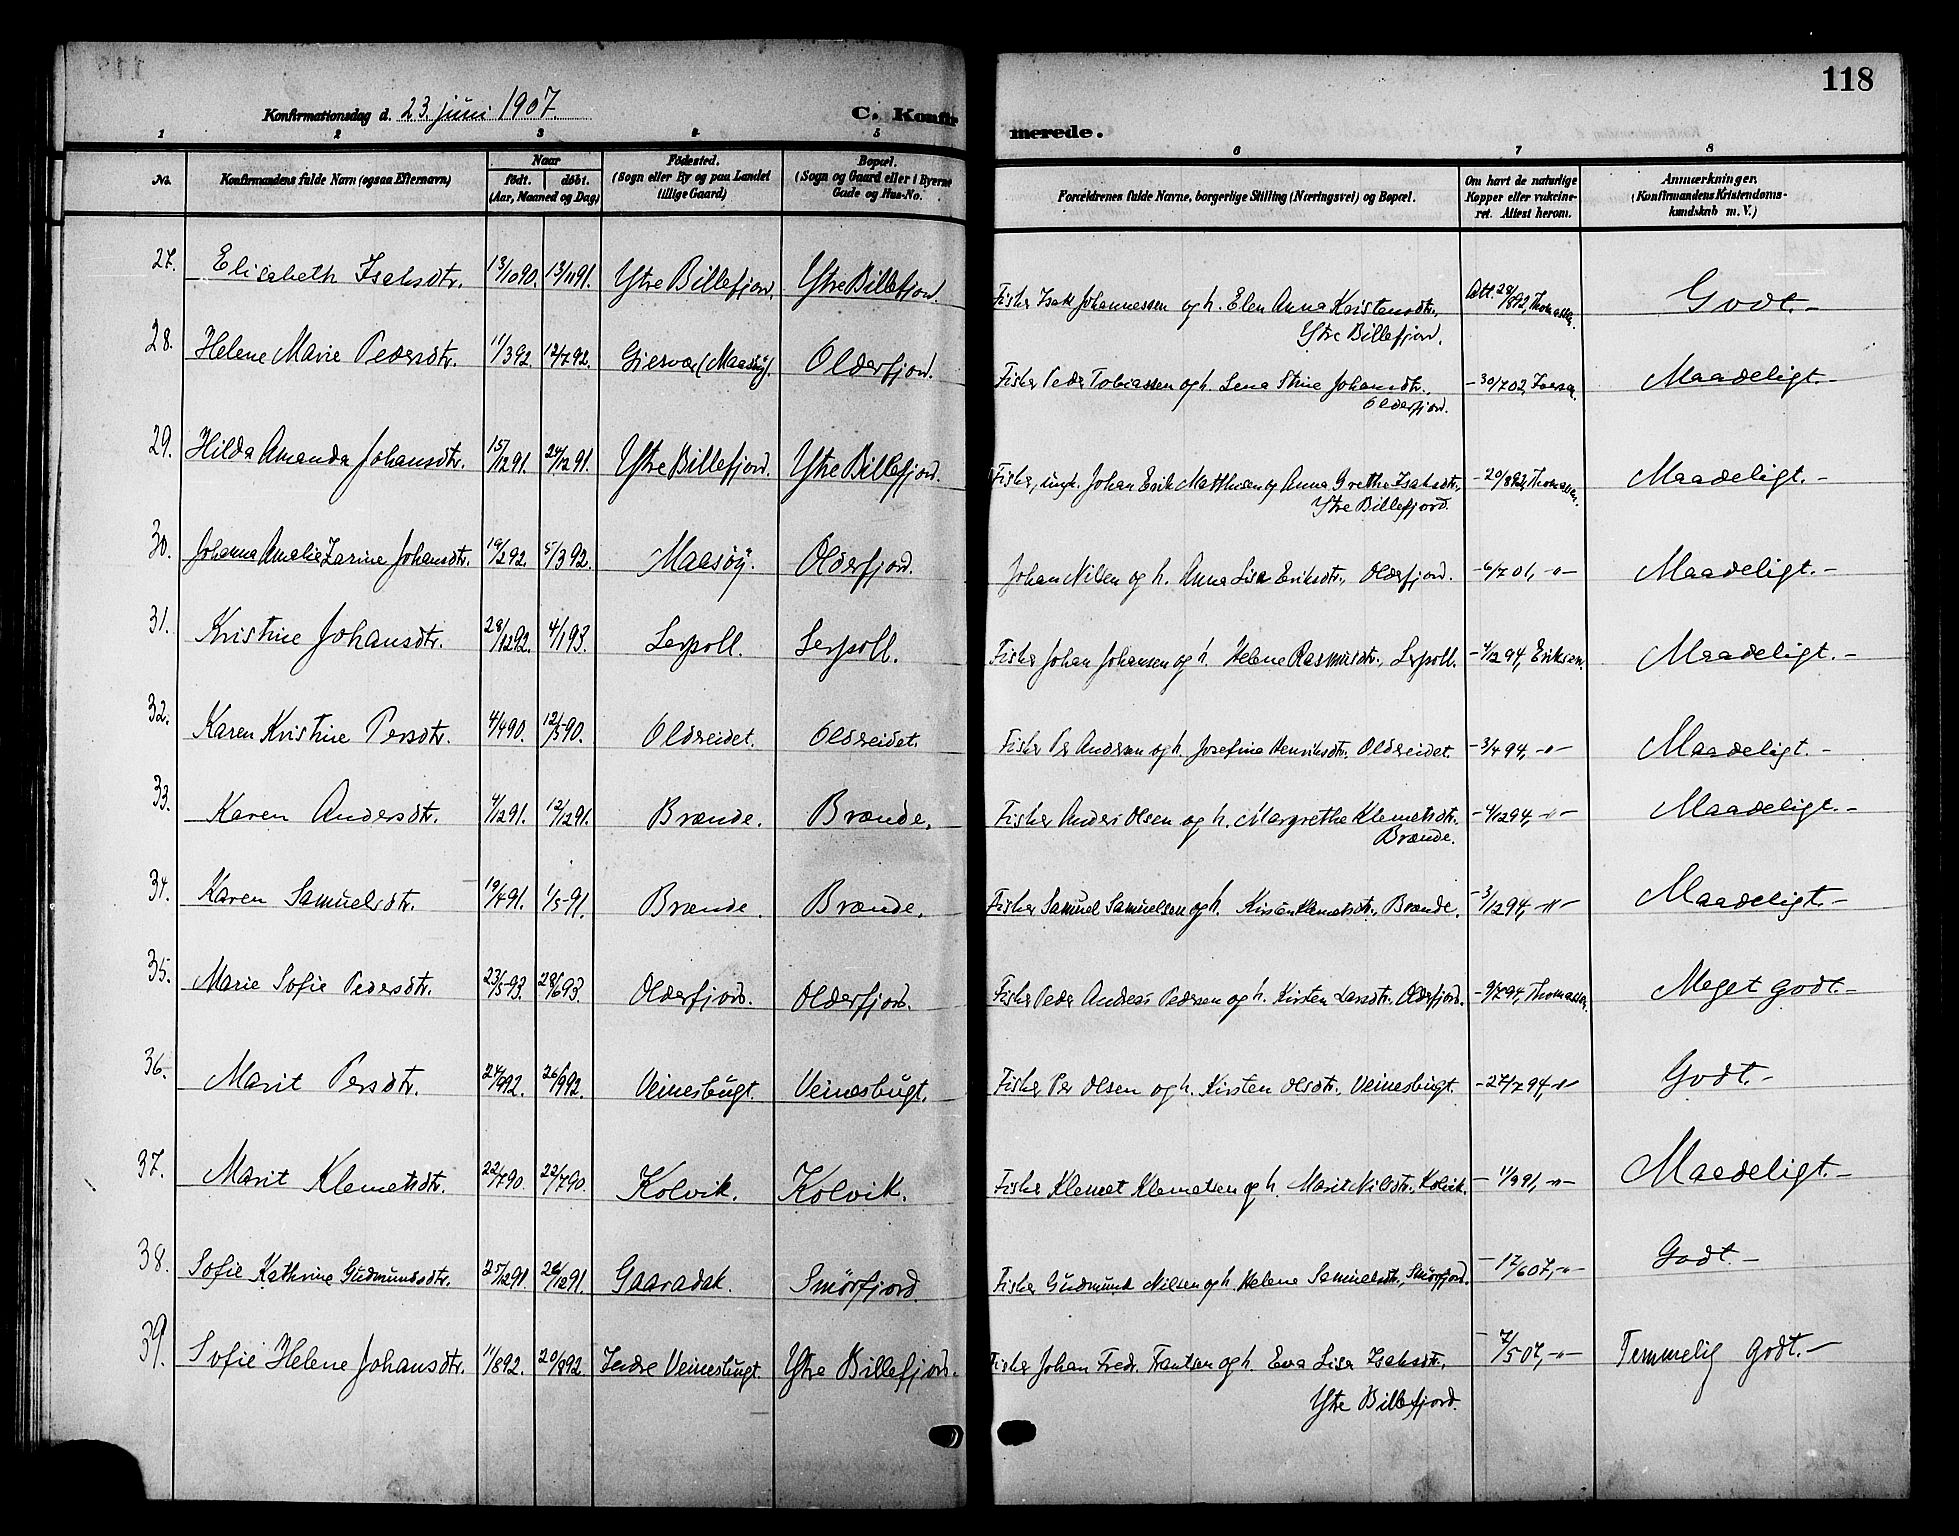 118
Konfirmationsdag d. 23. juni 1907. C. Konfirmerede.
1 2 3 4 5 6 7 8
No. Konfirmandens fulde Navn (ogsaa Efternavn) Naar født. døbt. (Aar, Maaned og Dag) Fødested. (Sogn eller By og paa Landet tillige Gaard) Bopæl. (Sogn og Gaard eller i Byerne Gade og Hus-No. Forældrenes fulde Navne, borgerlige Stilling (Næringsvei) og Bopæl. Om havt de naturlige Kopper eller vakcineret. Attest herom. Anmærkninger. (Konfirmandens Kristendomskundskab m. V.)
27. Elisabeth Isaksdtr. 13/10 90. 13/11 91. Ytre Billefjord. Ytre Billefjord. Fisker Isak Johannessen og h. Elen Anna Kristensdtr., Att. 28/8 92, Thomassen. Godt. -
Ytre Billefjord.
28. Helene Marie Pedersdtr. 11/3 92 12/7 92. Giesvær (Maasøy). Olderfjord. Fisker Peder Tobiassen og h. Lena Stine Johansdtr., - 30/7 02, Iversen. Maadeligt. -
Olderfjord.
29. Hilda Amanda Johansdtr. 15/12 91. 24/12 91. Ytre Billefjord. Ytre Billefjord. Fisker, ungk. Johan Erik Matthisen og Anna Grethe Isaksdtr., - 20/8 92, Thomassen. Maadeligt. -
Ytre Billefjord.
30. Johanna Amalie Zarine Johansdtr. 19/2 92. 5/3 92. Maasøy. Olderfjord. Johan Nilsen og h. Anna Lisa Eriksdtr., Olderfjord. - 6/7 01, -"- Maadeligt. -
31. Kristine Johansdtr. 28/12 92. 4/1 93. Lerpoll. Lerpoll. Fisker Johan Johansen og h. Helene Rasmusdtr., Lerpoll. - 4/12 94, Eriksen. Maadeligt. -
32. Karen Kristine Persdtr. 4/4 90. 12/5 90. Oldereidet. Oldereidet. Fisker Per Andersen og h. Josefine Henriksdtr. Oldereidet. - 3/4 94, -"- Maadeligt. -
33. Karen Andersdtr. 4/12 91. 12/12 91. Brænde. Brænde. Fisker Anders Olsen og h. Margrethe Klemetsdtr. - 4/12 94, -"- Maadeligt. -
Brænde.
34. Karen Samuelsdtr. 19/4 91. 1/5 91. Brænde. Brænde. Fisker Samuel Samuelsen og h. Kirsten Klemetsdtr., Brænde. - 3/12 94, -"- Maadeligt. -
35. Marie Sofie Pedersdtr. 23/5 93. 28/6 93. Olderfjord. Olderfjord. Fisker Peder Andreas Pedersen og h. Kirsten Larsdtr. Olderfjord. - 9/7 94, Thomassen. Meget godt. -
36. Marit Persdtr. 24/9 92. 26/9 92. Veinesbugt. Veinesbugt. Fisker Per Olsen og h. Kirsten Olsdtr., Veinesbugt. - 27/7 94, -"- Godt. -
37. Marit Klemetsdtr. 22/7 90. 22/7 90. Kolvik. Kolvik. Fisker Klemet Klemetsen og h. Marit Nilsdtr. Kolvik. - 1/9 91, -"- Maadeligt. -
38. Sofie Kathrine Gudmundsdtr. 25/12 91. 26/12 91. Gaaradak. Smørfjord. Fisker Gudmund Nilsen og h. Helene Samuelsdtr., Smørfjord. - 17/6 07, -"- Godt. -
39. Sofie Helene Johansdtr. 11/8 92. 20/8 92. Indre Veinesbugt. Ytre Billefjord. Fisker Johan Fredr. Frantsen og h. Eva Lisa Isaksdtr., - 7/5 07, -"- Temmelig godt. -
Ytre Billefjord.